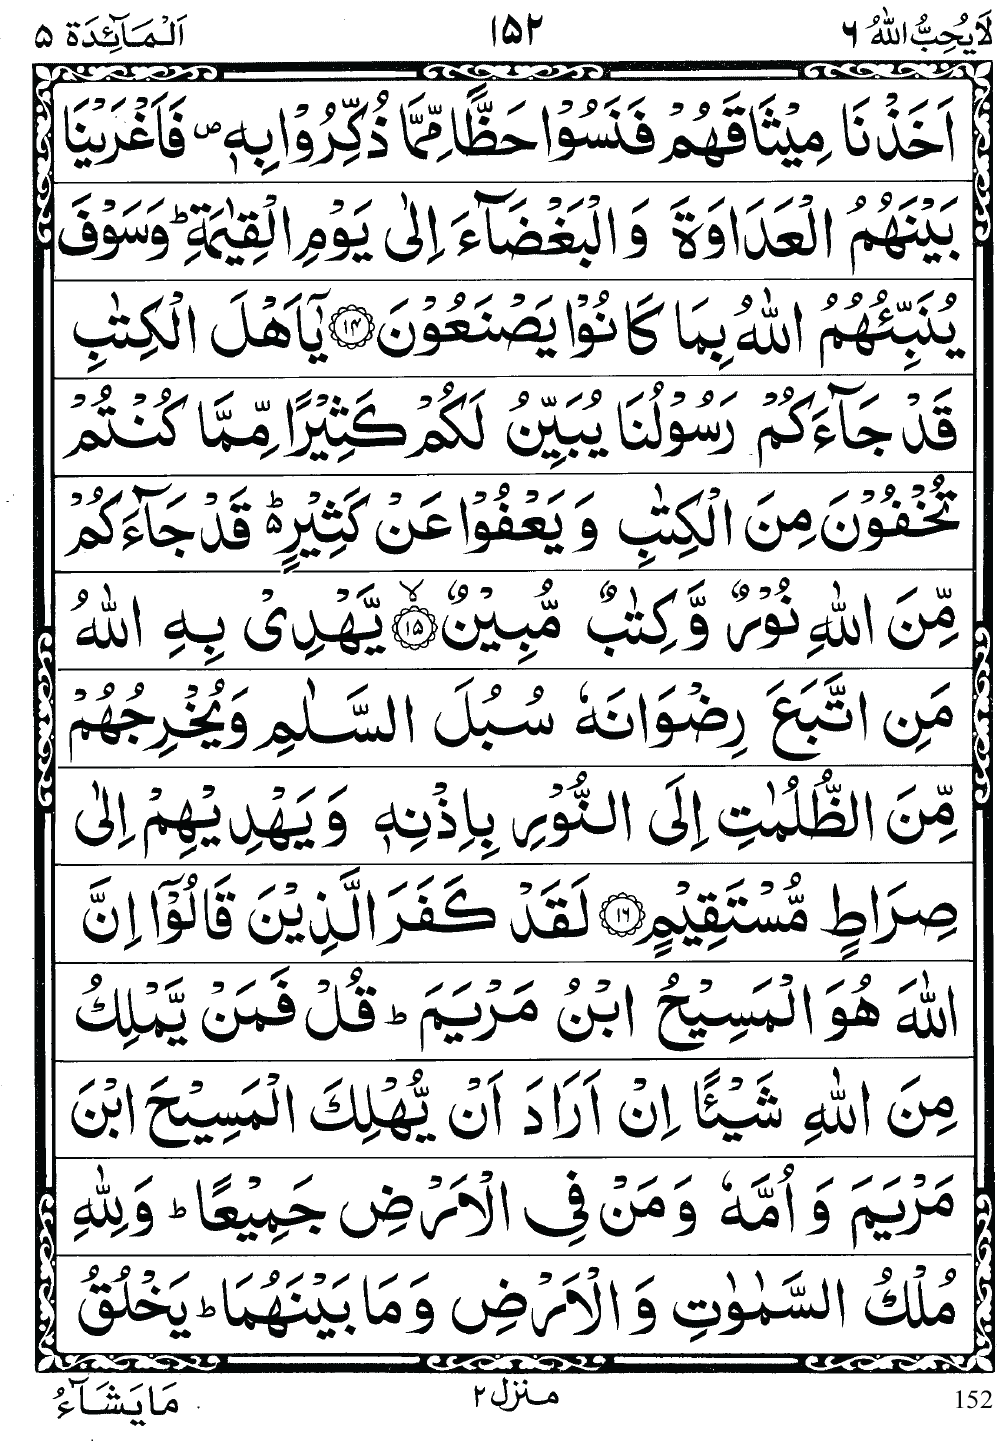 لَا يُحِبُّ اللّٰهُ ٦ ١٥٢ اَلْمَآئِدَة ٥
اَخَذْنَا مِيْثَاقَهُمْ فَنَسُوْا حَظًّا مِّمَّا ذُكِّرُوْا بِهٖ ۪ فَاَغْرَيْنَا
بَيْنَهُمُ الْعَدَاوَةَ وَ الْبَغْضَآءَ اِلٰى يَوْمِ الْقِيٰمَةِ ؕ وَ سَوْفَ
يُنَبِّئُهُمُ اللّٰهُ بِمَا كَانُوْا يَصْنَعُوْنَ ﴿١٤﴾ يٰۤاَهْلَ الْكِتٰبِ
قَدْ جَآءَكُمْ رَسُوْلُنَا يُبَيِّنُ لَكُمْ كَثِيْرًا مِّمَّا كُنْتُمْ
تُخْفُوْنَ مِنَ الْكِتٰبِ وَ يَعْفُوْا عَنْ كَثِيْرٍ ۬ؕ قَدْ جَآءَكُمْ
مِّنَ اللّٰهِ نُوْرٌ وَّ كِتٰبٌ مُّبِيْنٌ ﴿١٥﴾ۙ يَّهْدِيْ بِهِ اللّٰهُ
مَنِ اتَّبَعَ رِضْوَانَهٗ سُبُلَ السَّلٰمِ وَ يُخْرِجُهُمْ
مِّنَ الظُّلُمٰتِ اِلَى النُّوْرِ بِاِذْنِهٖ وَ يَهْدِيْهِمْ اِلٰى
صِرَاطٍ مُّسْتَقِيْمٍ ﴿١٦﴾ لَقَدْ كَفَرَ الَّذِيْنَ قَالُوْۤا اِنَّ
اللّٰهَ هُوَ الْمَسِيْحُ ابْنُ مَرْيَمَ ؕ قُلْ فَمَنْ يَّمْلِكُ
مِنَ اللّٰهِ شَيْـًٔا اِنْ اَرَادَ اَنْ يُّهْلِكَ الْمَسِيْحَ ابْنَ
مَرْيَمَ وَ اُمَّهٗ وَ مَنْ فِي الْاَرْضِ جَمِيْعًا ؕ وَ لِلّٰهِ
مُلْكُ السَّمٰوٰتِ وَ الْاَرْضِ وَ مَا بَيْنَهُمَا ؕ يَخْلُقُ
152 منزل ٢ مَا يَشَآءُ